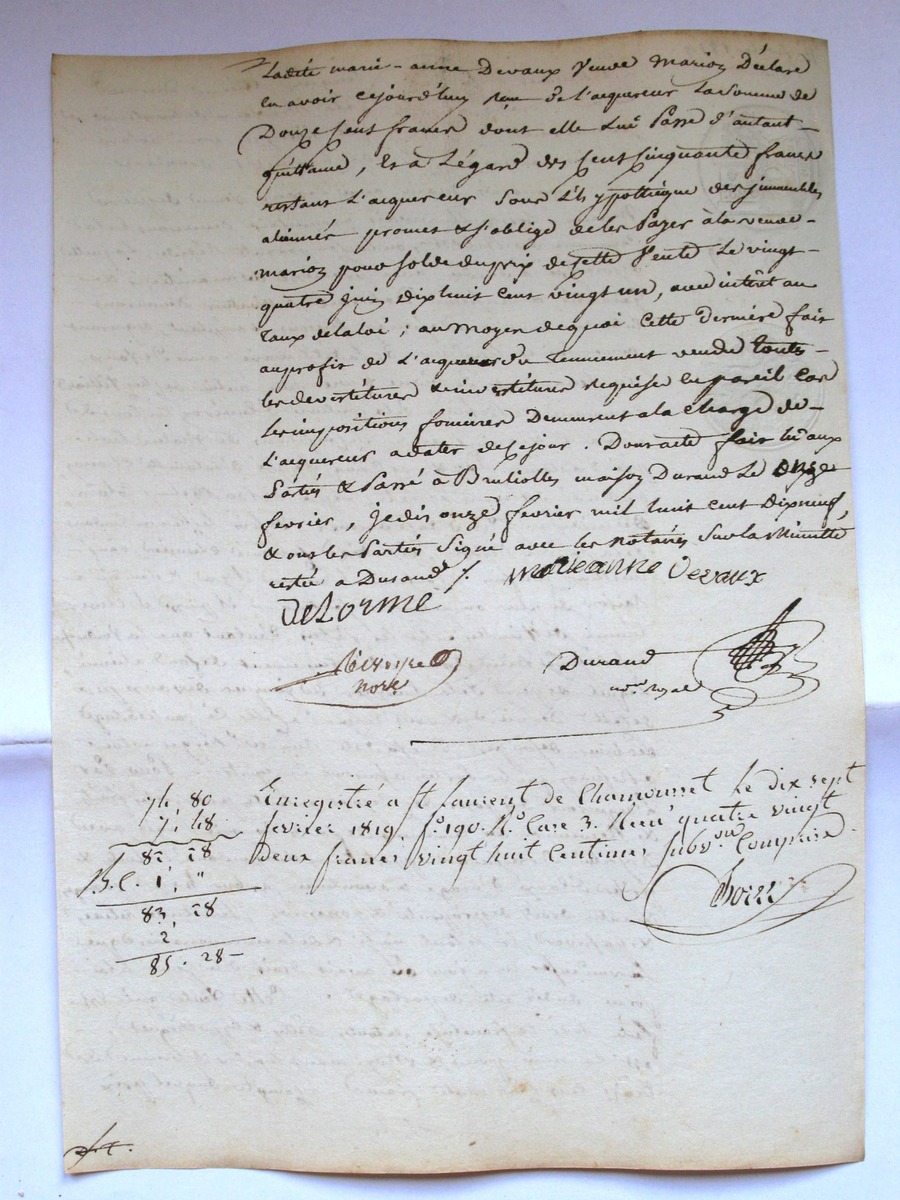 Ladite marie-anne Devaux veuve Marion Déclare
en avoir cejourd'huy reçu de l'acquereur La somme de
Douze cent francs dont elle Lui Passe d'autant
quittance, Et à Légard des sept cinquante francs
restant L'acquereur sous L'hypothèque des immeubles
aliennés promet & s'oblige de les Payer à la veuve
marion pour solde du prix de cette vente Le vingt
quatre juin dix huit cent vingt un, avec intérêt au
taux de la loi ; au moyen de quoi cette derniere fait
au profit de L'acquereur du tennement vendu toutes
les devestitures & investitures requises en pareil cas
Les impositions foncieres Demeurent a la charge de
L'acquereur a dater de ce jour. Dont acte fait lu aux
Parties & Passé à Brulioles maison Durand Le onze
fevrier, je dis onze fevrier mil huit cent dixneuf,
& ont les Parties signé avec les notaires sur la Minutte
restée a Durand /.
marieanne devaux
Delorme
nore
Durand
no.re royal
74, 80
7, 48
82. 28
B.C. 1, "
83, 28
2,
85. 28
Enregistré a St Laurent de Chamousset Le dix sept
fevrier 1819, f.o 190. R.o Case 3. Recu quatre vingt
deux francs vingt huit centimes subv.on Comprise.